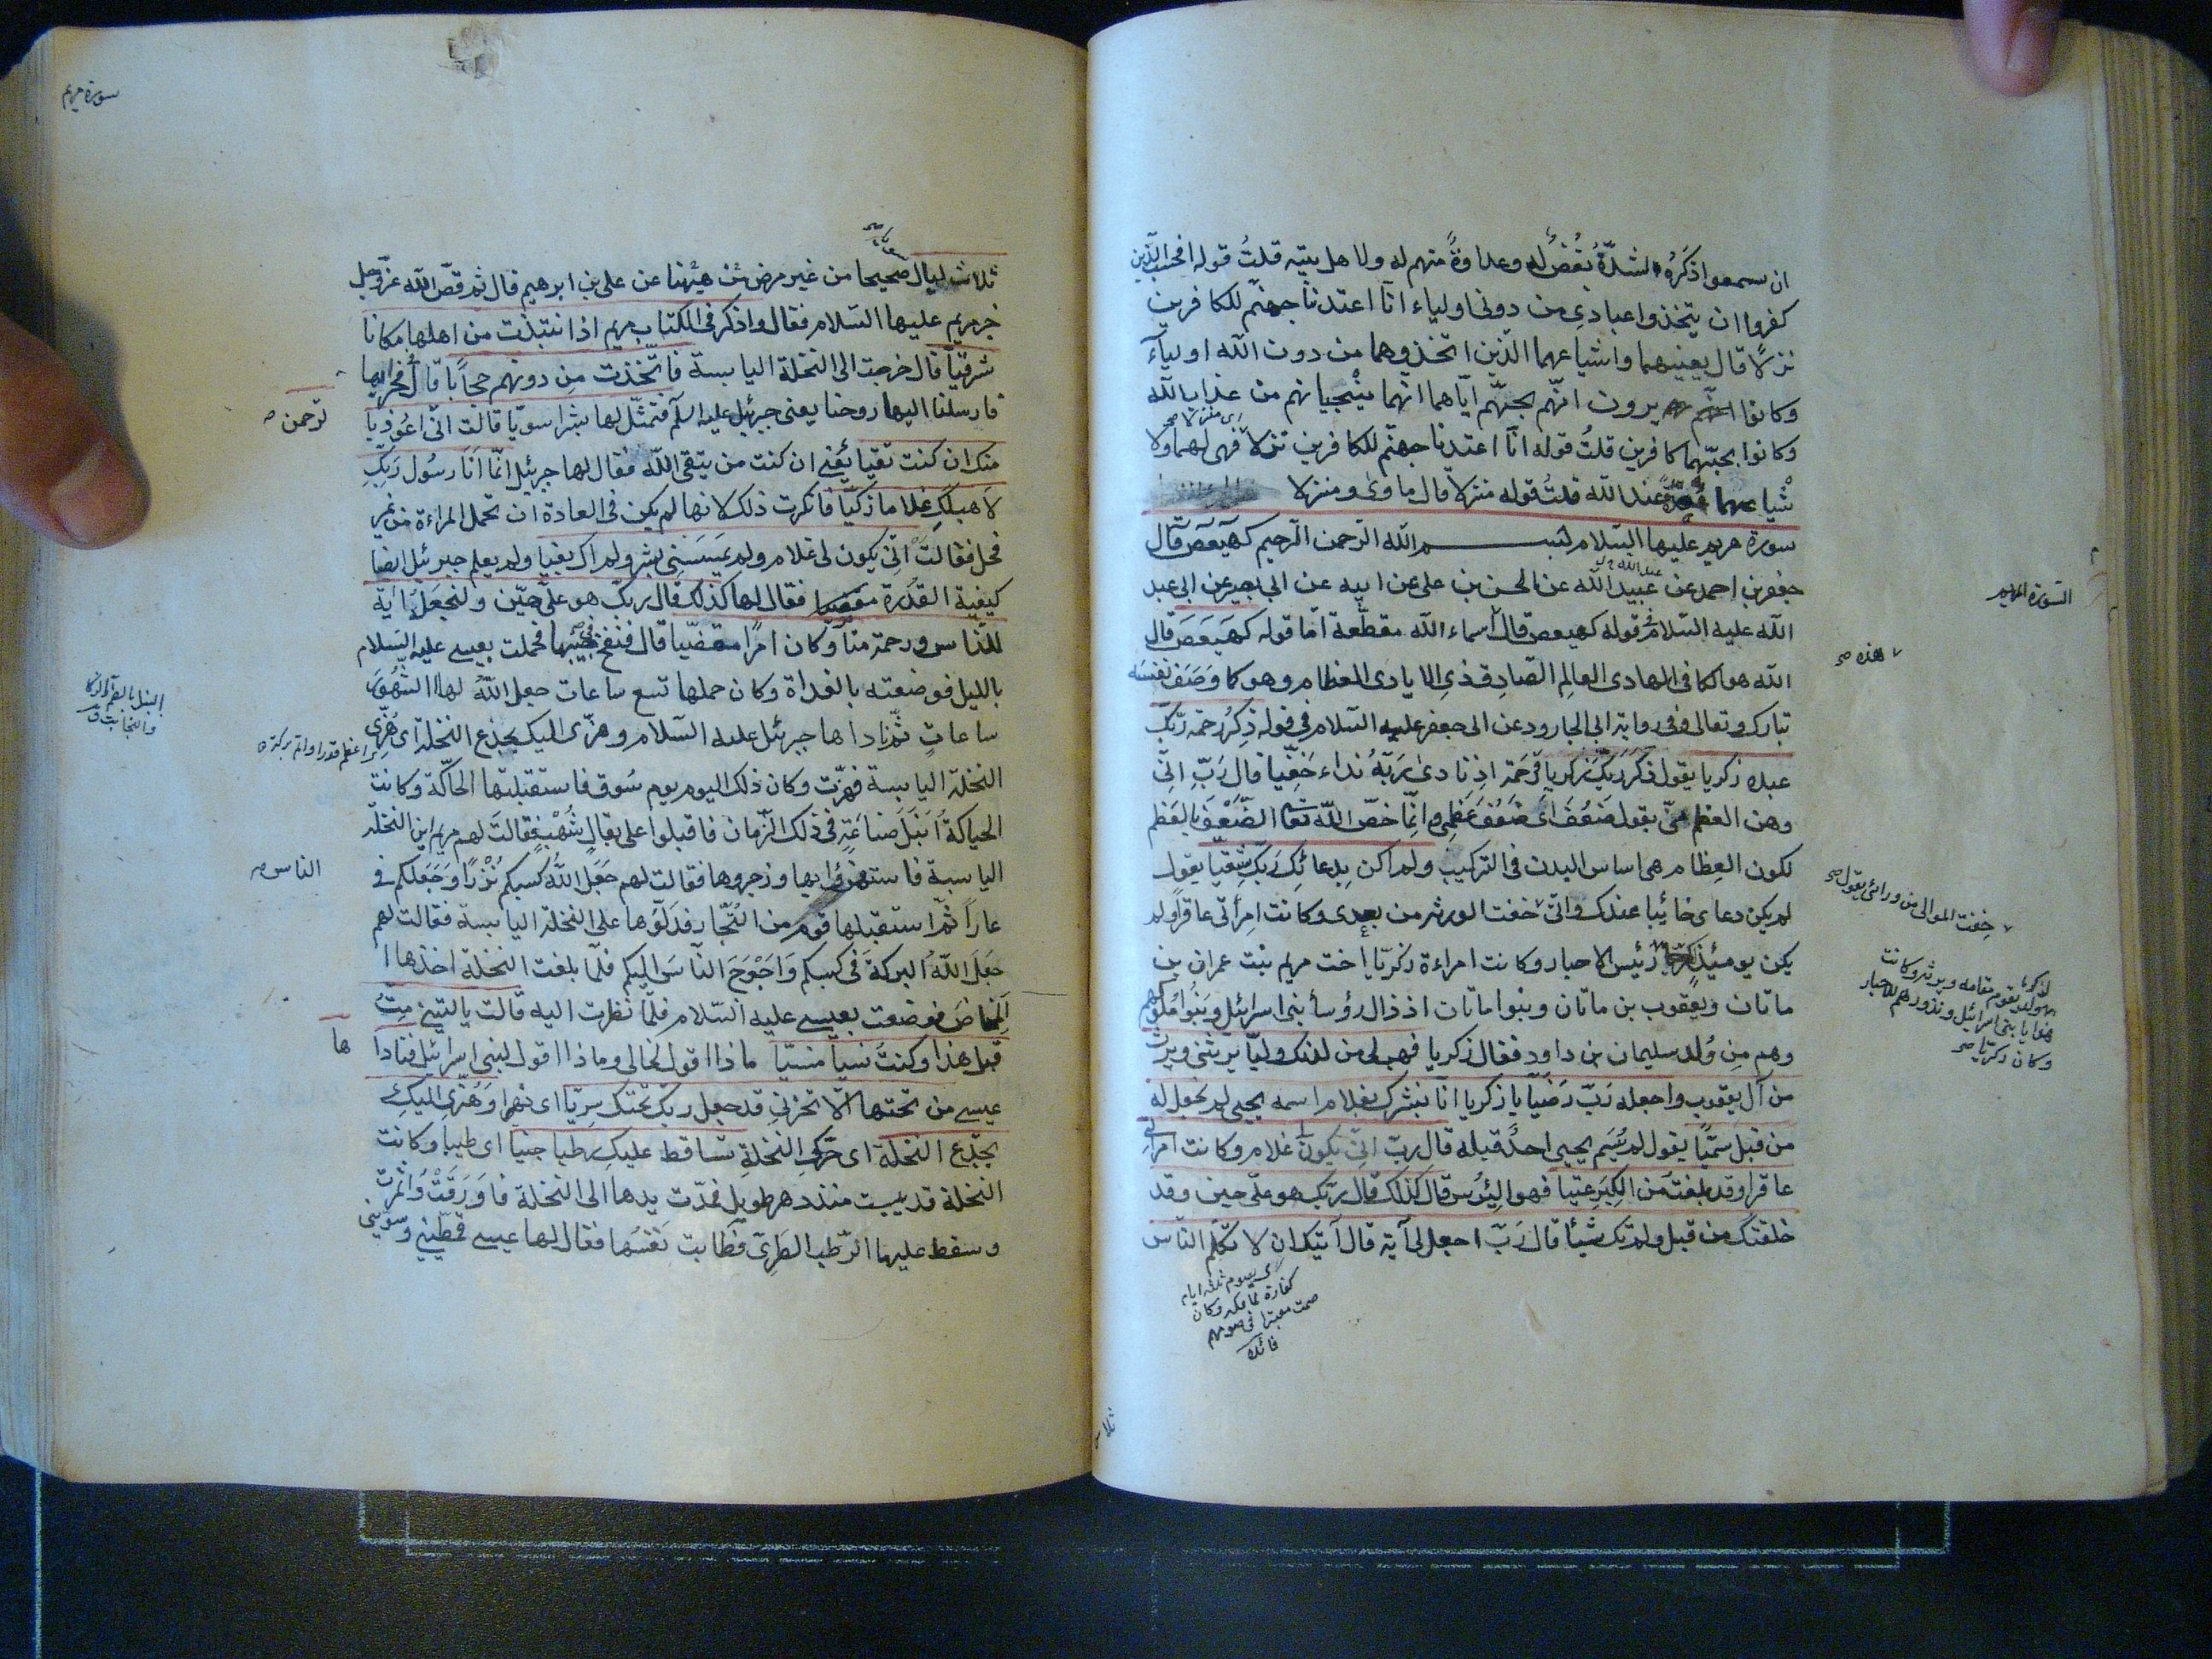 ان سمعوا ذكره لشدّة بُغض له وعداوةً منهم له ولاهل بيته قلتُ قوله افحسب الّذين
كفروا ان يتخذوا عبادى من دونى اولياء انّا اعتدنا جهنّم للكافرين
نزلاً قال يعنيهما واشياعهما الّذين اتخذوهما من دون الله اولياء
وكانوا يرون انّهم بحبّهم ايّاهما انهما ينجيانهم من عذاب الله
وكانوا بحبّهما كافرين قلتُ قوله انّا اعتدنا جهنّم للكافرين نزلاً فهى لهما ولا
شياعهما عند الله قلتُ قوله منزلاً قال ماوىً ومنزلا
سورة مريم عليها السّلام بسم الله الرّحمن الرّحيم كهيعص قال
جعفر بن احمد عن عبيد الله عن الحسن بن على عن ابيه عن ابى بصير عن ابى عبد
الله عليه السّلام فى قوله كهيعص قال اسماء الله مقطّعة امّا قوله كهيعص قال
الله هو الكافى الهادى العالم الصّادق ذى الايادى العظام وهو كما وَصَفَ نفسَه
تبارك وتعالى وفى رواية ابى الجارود عن ابى جعفر عليه السّلام فى قوله ذِكرُ رحمة ربّك
عبده زكريا يقول ذكر ربّك زكريا فرحمه اذ نادى ربّهُ نداء خفيّا قال رَبّ انّى
وهن العظم منّى يقول ضَعُفَ اى ضَعُفَ عَظمى وانّما خصّ الله تعا الضّعف بالعَظم
لكون العِظام هى اساس البدن فى التركيب ولم اكن بدعائك ربّ شقيّا يقول
لم يكن دعاى خائبا عندك وانّى خفت الورثة من بعدى وكانت امرأتى عاقرا ولم
يكن يومئذ لزكريا رئيس الاحبار وكانت امراءة زكريّا اخت مريم بنت عمران بن
ماتان ويعقوب بن ماتان وبنوا ماتان اذ ذاك رؤساء بنى اسرائيل وبنوا ملوكهم
وهم من وُلد سليمان بن داود فقال زكريا فهب لى من لدنك وليّا يرثنى ويرث
من آل يعقوب واجعله رَبّ رَضيّا يا زكريا انّا نبشرك بغلام اسمه يحيى لم نجعل له
من قبل سَمّيا يقول لم يُسَم يحيى احدٌ قبله قال ربّ انّى يكون لى غلام وكانت امراتى
عاقرا وقد بلغت من الكِبَر عتيا فهو اليَئوس قال كذلك قال ربّك هو علىّ هين وقد
خلقتك من قبل ولم تك شيئا قال رَبّ اجعل لى آية قال آيتك ان لا تكلّم الناس
السورة المريم
هذه صح
خفت الموالى من ورائى يقول صح
وكان زكريا صح
ثلاث
سورة مريم
ثلاث ليال صحيحا من غير مرض عن على بن ابرهيم قال ثم قصّ الله عزّوجل
خبر مريم عليها السّلام فقال واذكر فى الكتاب مريم اذ انتبذت من اهلها مكانا
شرقيّا قال خرجت الى النخلة اليابسة فاتّخذت مِن دونهم حجاباً قال فى محرابها
فارسلنا اليها روحنا يعنى جبرئيل عليه السلّم فتمثّل لها بشرا سويّا قالت انّى اعُوذ با
لرحمن صح
منك ان كنت تقيا يَعنى ان كنت من يتقى الله فقال لها جبرئيل انّما اَنَا رسُول رَبِّكِ
لاهب لكِ غلاما زكيّا فانكرت ذلك لانها لم يكن فى العادة ان تحمل المراءة من غير
فحل فقالت انّى يكون لى غلام ولم يمسسنى بشر ولم اك بغيا ولم يعلم جبرئيل ايضا
كيفية القدرة فقال لها كذلك قال ربّك هو علىّ هيّن ولنجعلهُ اية
للنّاس ورحمة منّا وكان امرًا مقضيّا قال فنفخ فى جَيْبها فحملت بعيسى عليه السّلام
بالليل فوضعته بالغداة وكان حملها تسع ساعات جعل اللهُ لها الشهُورَ
ساعاتٍ ثمّ ناداها جبرئيل عليه السّلام وهزّى اليك بجذع النخلة اى هُزّى
النخلة اليابسة فهزّت وكان ذلك اليوم يوم سُوق فاستقبلتها الحاكّة وكانت
الحياكةُ اَنبَلَ صناعَةٍ فى ذلك الزّمان فاقبلوا على بغالٍ شُهْبٍ فقالَت لهم مريم اين النخلة
اليابسة فاستهزؤا بها وزجروها فقالت لهم جَعَل اللهُ كسبكم نُزْرًا وَجَعَلكم فى
الناس صح
عاراً ثمّ استقبلها قوم من التُجّار فدَلّوها على النخلة اليابسة فقالت لهم
جعَلَ اللهُ البركةَ فى كسبكم وَاَحْوَجَ النّاسَ اليكم فلمّا بلغت النخلة اخذها ا
لمخاضَ فوضعت بعيسى عليه السّلام فلمّا نظرت اليه قالت ياليتنى متّ
قبل هذا وكنتُ نسيا منسيّا ماذا اقول لخالى وماذا اقول لبنى اسرائيل فنادا
ها
عيسى من تحتها الّا تحزنى قد جعل ربّك تحتك سِريّا اى نهرا وَهُزّى اليكِ
بجذع النخلة اى حرّكى النخلةِ تساقط عليكِ رطبا جنيا اى طيبا وكانت
النخلة قد يبست منذ دهر طويل فمدّت يدها الى النخلة فاَوْرَقَتْ وَاثمرت
وسقط عليها الرّطب الطرِىّ فطابت نَفسُها فقال لها عيسى قمّطينى وسوّينى